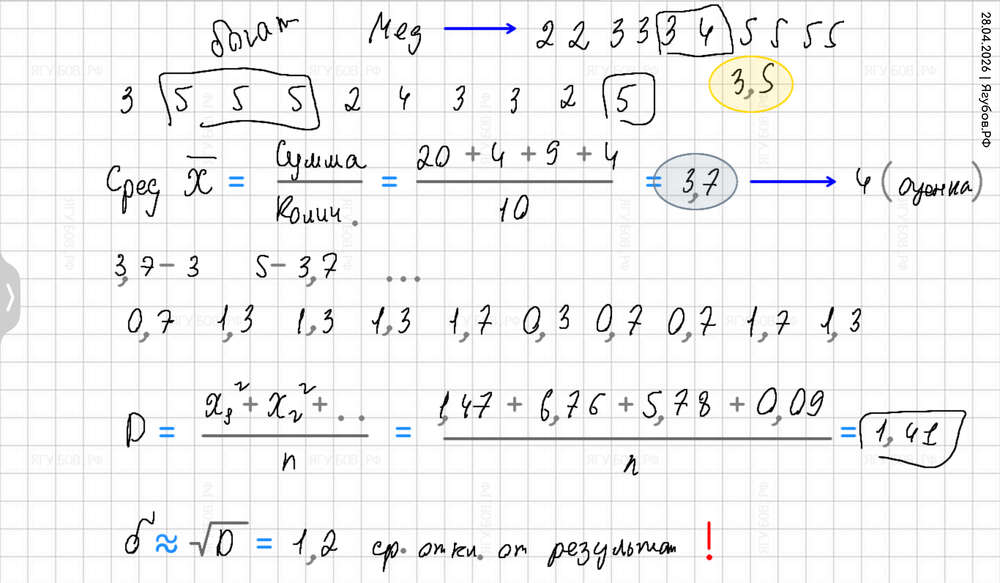 Мед → 2 2 3 3 3 4 5 5 5 5
3,5
3 5 5 5 2 4 3 3 2 5
Сред x̅ = Сумма / Колич. = 20 + 4 + 9 + 4 / 10 = 3,7 → 4 (оценка)
3,7 - 3 5 - 3,7 ...
0,7 1,3 1,3 1,3 1,7 0,3 0,7 0,7 1,7 1,3
D = x₁² + x₂² + .. / n = 1,47 + 6,76 + 5,78 + 0,09 / n = 1,41
σ ≈ √D = 1,2 ср. откл. от результат !
28.04.2026 | Ягубов.РФ